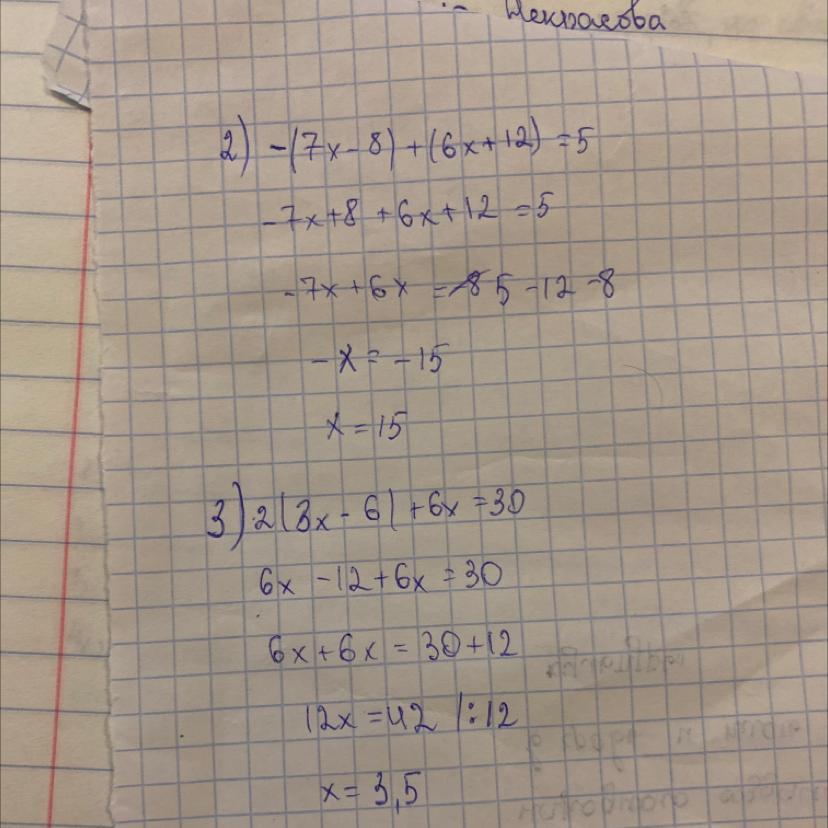 Некрасова
2) -(7x-8)+(6x+12)=5
-7x+8+6x+12=5
-7x+6x=5-12-8
-x=-15
x=15
3) 2(3x-6)+6x=30
6x-12+6x=30
6x+6x=30+12
12x=42 |:12
x=3,5